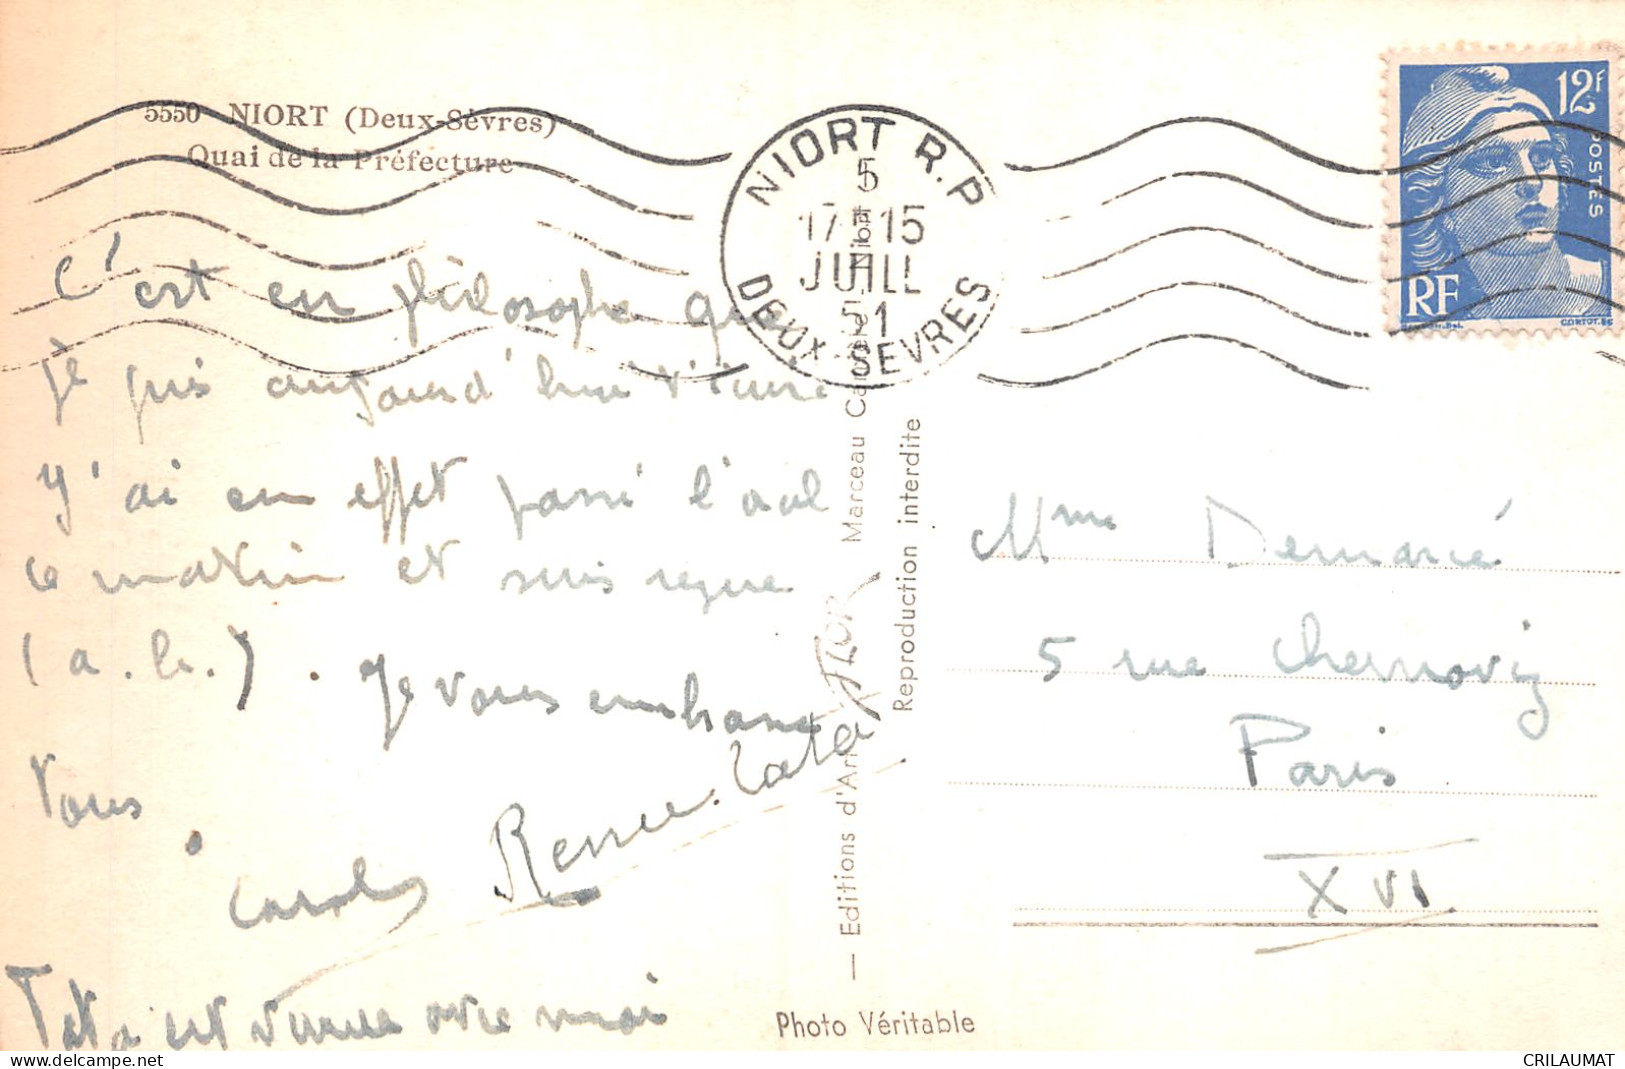 5550 NIORT (Deux-Sèvres)
Quai de la Préfecture
NIORT R.P
5
17H15
JUILL
51
DEUX-SEVRES
12f
POSTES
RF
C'est en philosophe que
je puis aujourd'hui
J'ai en effet passé l'oral
ce matin et suis reçue
(a.b.). Je vous embrasse
tous.
Renée. Tata FLOR
Tata est venue avec moi
Editions d'Art Marceau Carrière, Niort
Reproduction interdite
Photo Véritable
Mme Demarié
5 rue Chernoviz
Paris
XVI
CRILAUMAT